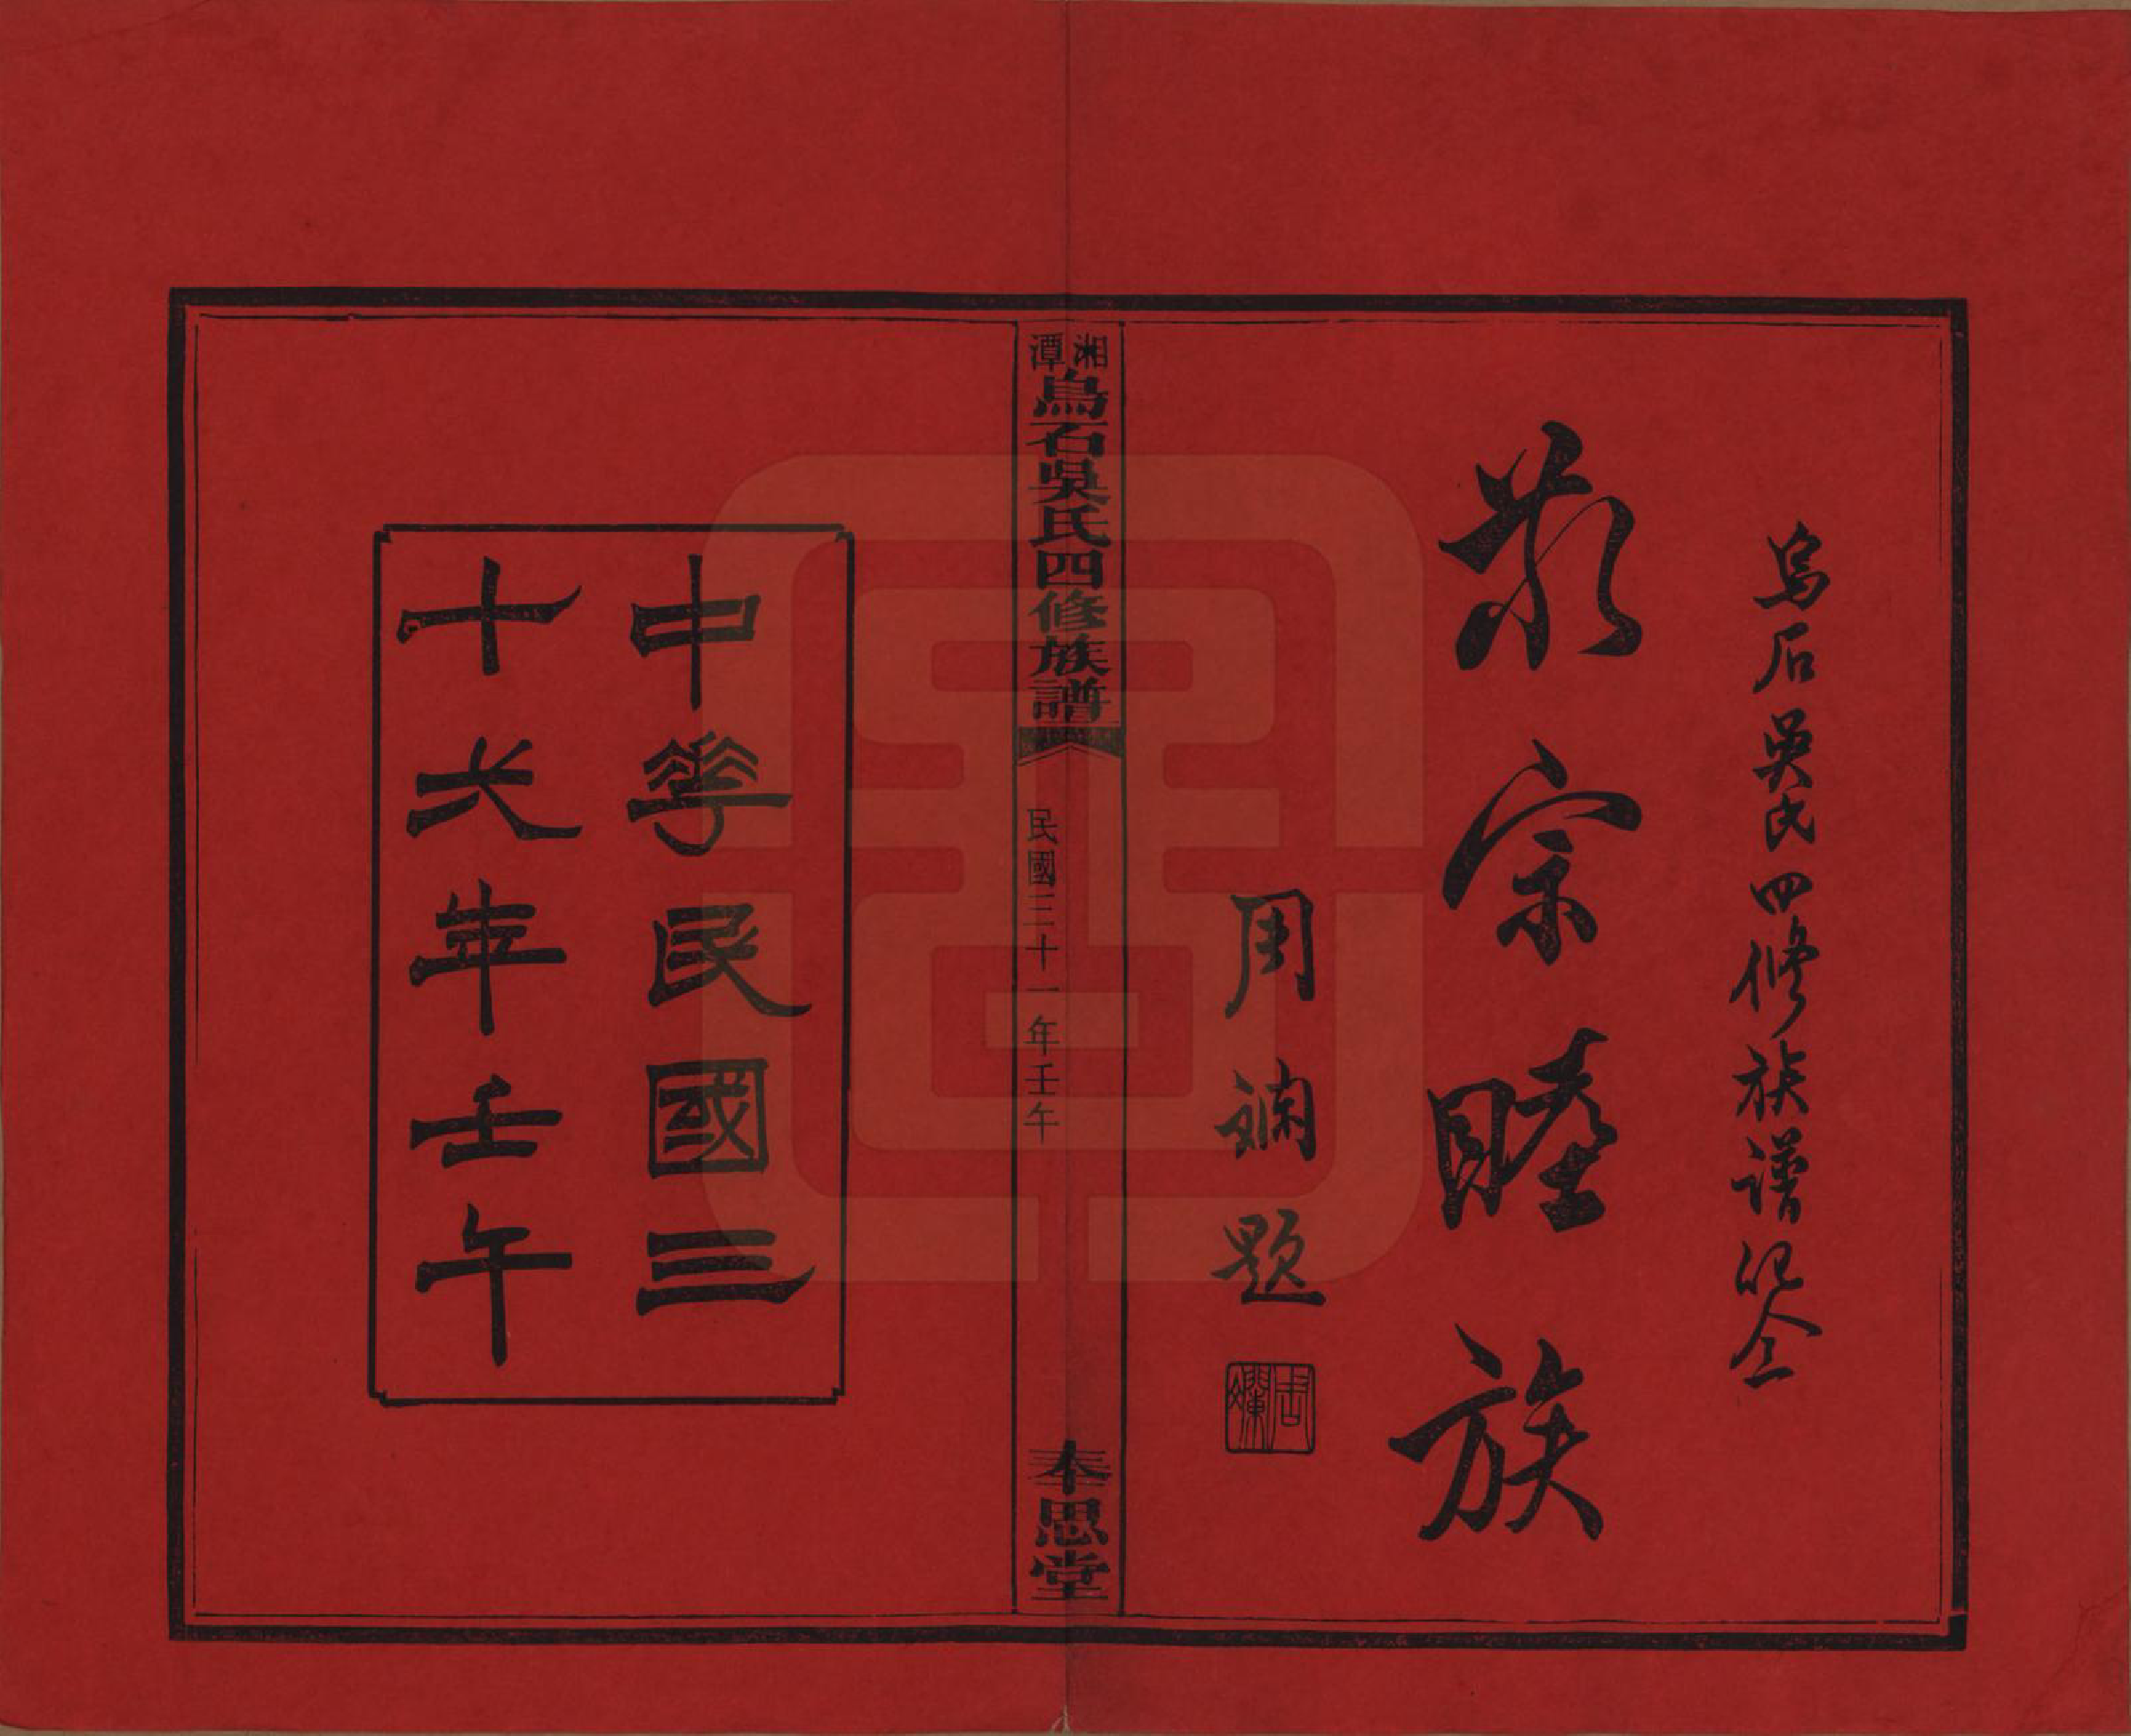 烏石吳氏四修族譜紀念
敬宗睦族
周斕題
周斕
湘潭烏石吳氏四修族譜
民國三十一年壬午
奉思堂
中華民國三
十弌年壬午